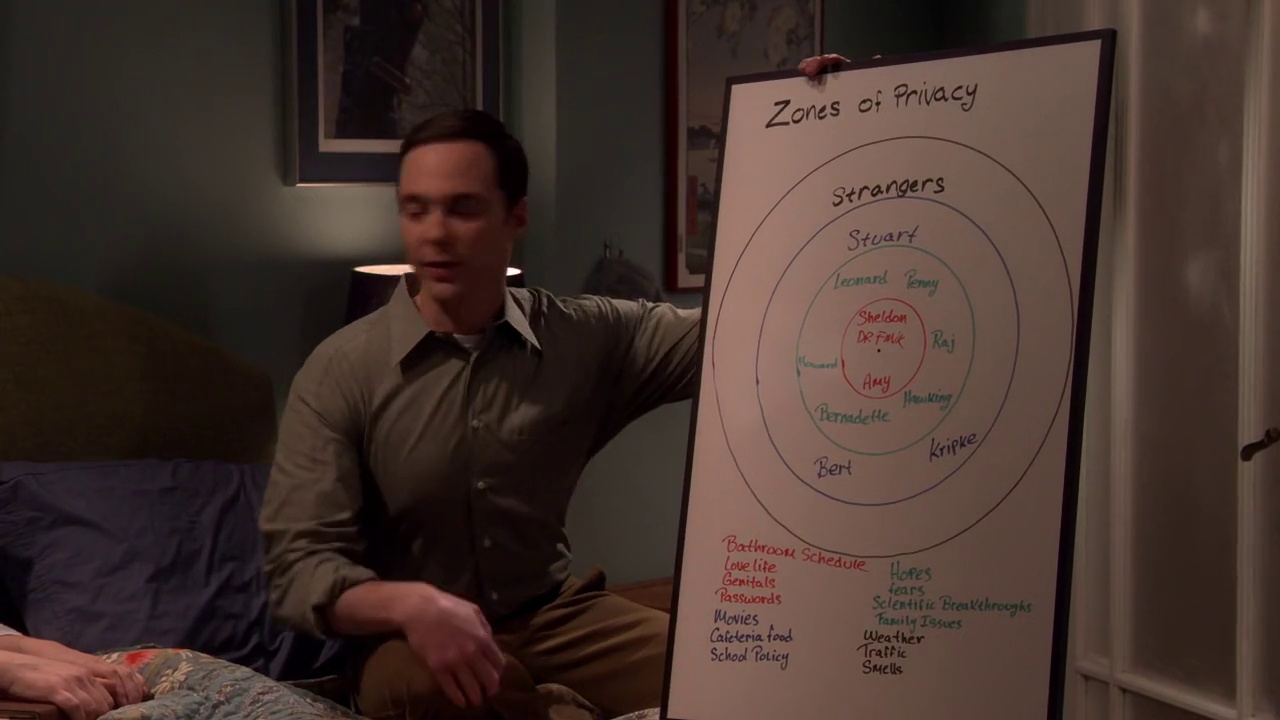 Zones of Privacy
Strangers
Stuart
Leonard Penny
Sheldon
DR.FMK
Raj
Howard
Amy
Hawking
Bernadette
Kripke
Bert
Bathroom Schedule
Love life
Genitals
Passwords
Movies
Cafeteria food
School Policy
Hopes
fears
Scientific Breakthroughs
Family Issues
Weather
Traffic
Smells